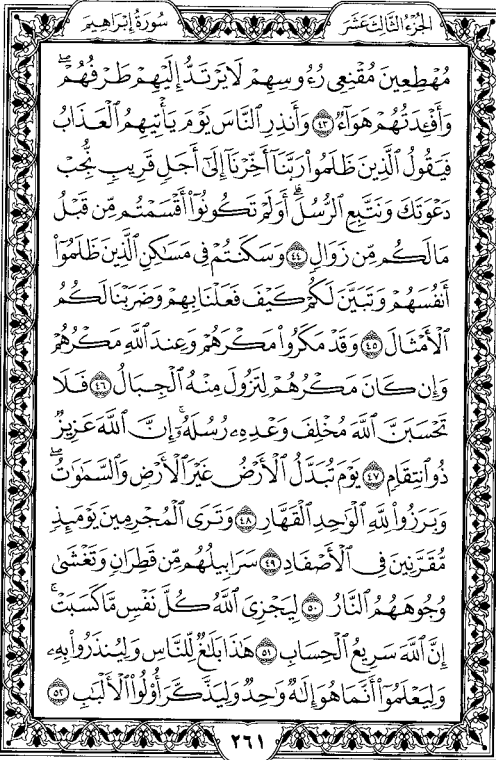 الجزء الثالث عشر
سورة إبراهيم
مُهْطِعِينَ مُقْنِعِي رُءُوسِهِمْ لَا يَرْتَدُّ إِلَيْهِمْ طَرْفُهُمْ ۖ
وَأَفْـِٔدَتُهُمْ هَوَآءٌ ٤٣ وَأَنذِرِ ٱلنَّاسَ يَوْمَ يَأْتِيهِمُ ٱلْعَذَابُ
فَيَقُولُ ٱلَّذِينَ ظَلَمُوا۟ رَبَّنَآ أَخِّرْنَآ إِلَىٰٓ أَجَلٍ قَرِيبٍ نُّجِبْ
دَعْوَتَكَ وَنَتَّبِعِ ٱلرُّسُلَ ۗ أَوَلَمْ تَكُونُوٓا۟ أَقْسَمْتُم مِّن قَبْلُ
مَا لَكُم مِّن زَوَالٍ ٤٤ وَسَكَنتُمْ فِى مَسَـٰكِنِ ٱلَّذِينَ ظَلَمُوٓا۟
أَنفُسَهُمْ وَتَبَيَّنَ لَكُمْ كَيْفَ فَعَلْنَا بِهِمْ وَضَرَبْنَا لَكُمُ
ٱلْأَمْثَالَ ٤٥ وَقَدْ مَكَرُوا۟ مَكْرَهُمْ وَعِندَ ٱللَّهِ مَكْرُهُمْ
وَإِن كَانَ مَكْرُهُمْ لِتَزُولَ مِنْهُ ٱلْجِبَالُ ٤٦ فَلَا
تَحْسَبَنَّ ٱللَّهَ مُخْلِفَ وَعْدِهِۦ رُسُلَهُۥٓ ۗ إِنَّ ٱللَّهَ عَزِيزٌ
ذُو ٱنتِقَامٍ ٤٧ يَوْمَ تُبَدَّلُ ٱلْأَرْضُ غَيْرَ ٱلْأَرْضِ وَٱلسَّمَـٰوَٰتُ ۖ
وَبَرَزُوا۟ لِلَّهِ ٱلْوَٰحِدِ ٱلْقَهَّارِ ٤٨ وَتَرَى ٱلْمُجْرِمِينَ يَوْمَئِذٍ
مُّقَرَّنِينَ فِى ٱلْأَصْفَادِ ٤٩ سَرَابِيلُهُم مِّن قَطِرَانٍ وَتَغْشَىٰ
وُجُوهَهُمُ ٱلنَّارُ ٥٠ لِيَجْزِىَ ٱللَّهُ كُلَّ نَفْسٍ مَّا كَسَبَتْ ۚ
إِنَّ ٱللَّهَ سَرِيعُ ٱلْحِسَابِ ٥١ هَـٰذَا بَلَـٰغٌ لِّلنَّاسِ وَلِيُنذَرُوا۟ بِهِۦ
وَلِيَعْلَمُوٓا۟ أَنَّمَا هُوَ إِلَـٰهٌ وَٰحِدٌ وَلِيَذَّكَّرَ أُو۟لُوا۟ ٱلْأَلْبَـٰبِ ٥٢
٢٦١